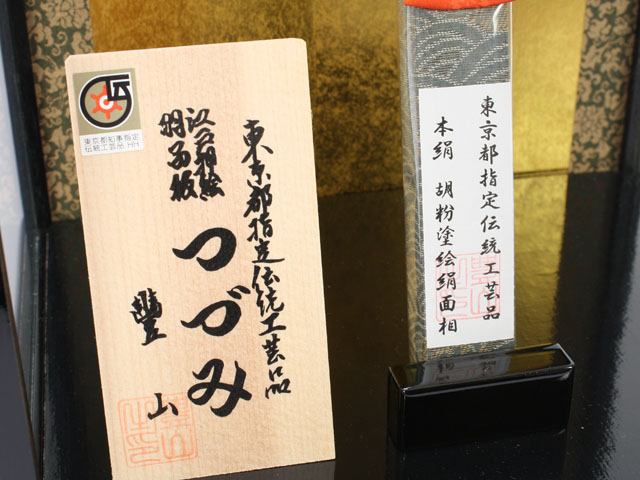 東京都指定伝統工芸品
江戸押絵
羽子板
つづみ
豊山
東京都知事指定
伝統工芸品 HH
東京都指定伝統工芸品
本絹 胡粉塗絵絹面相